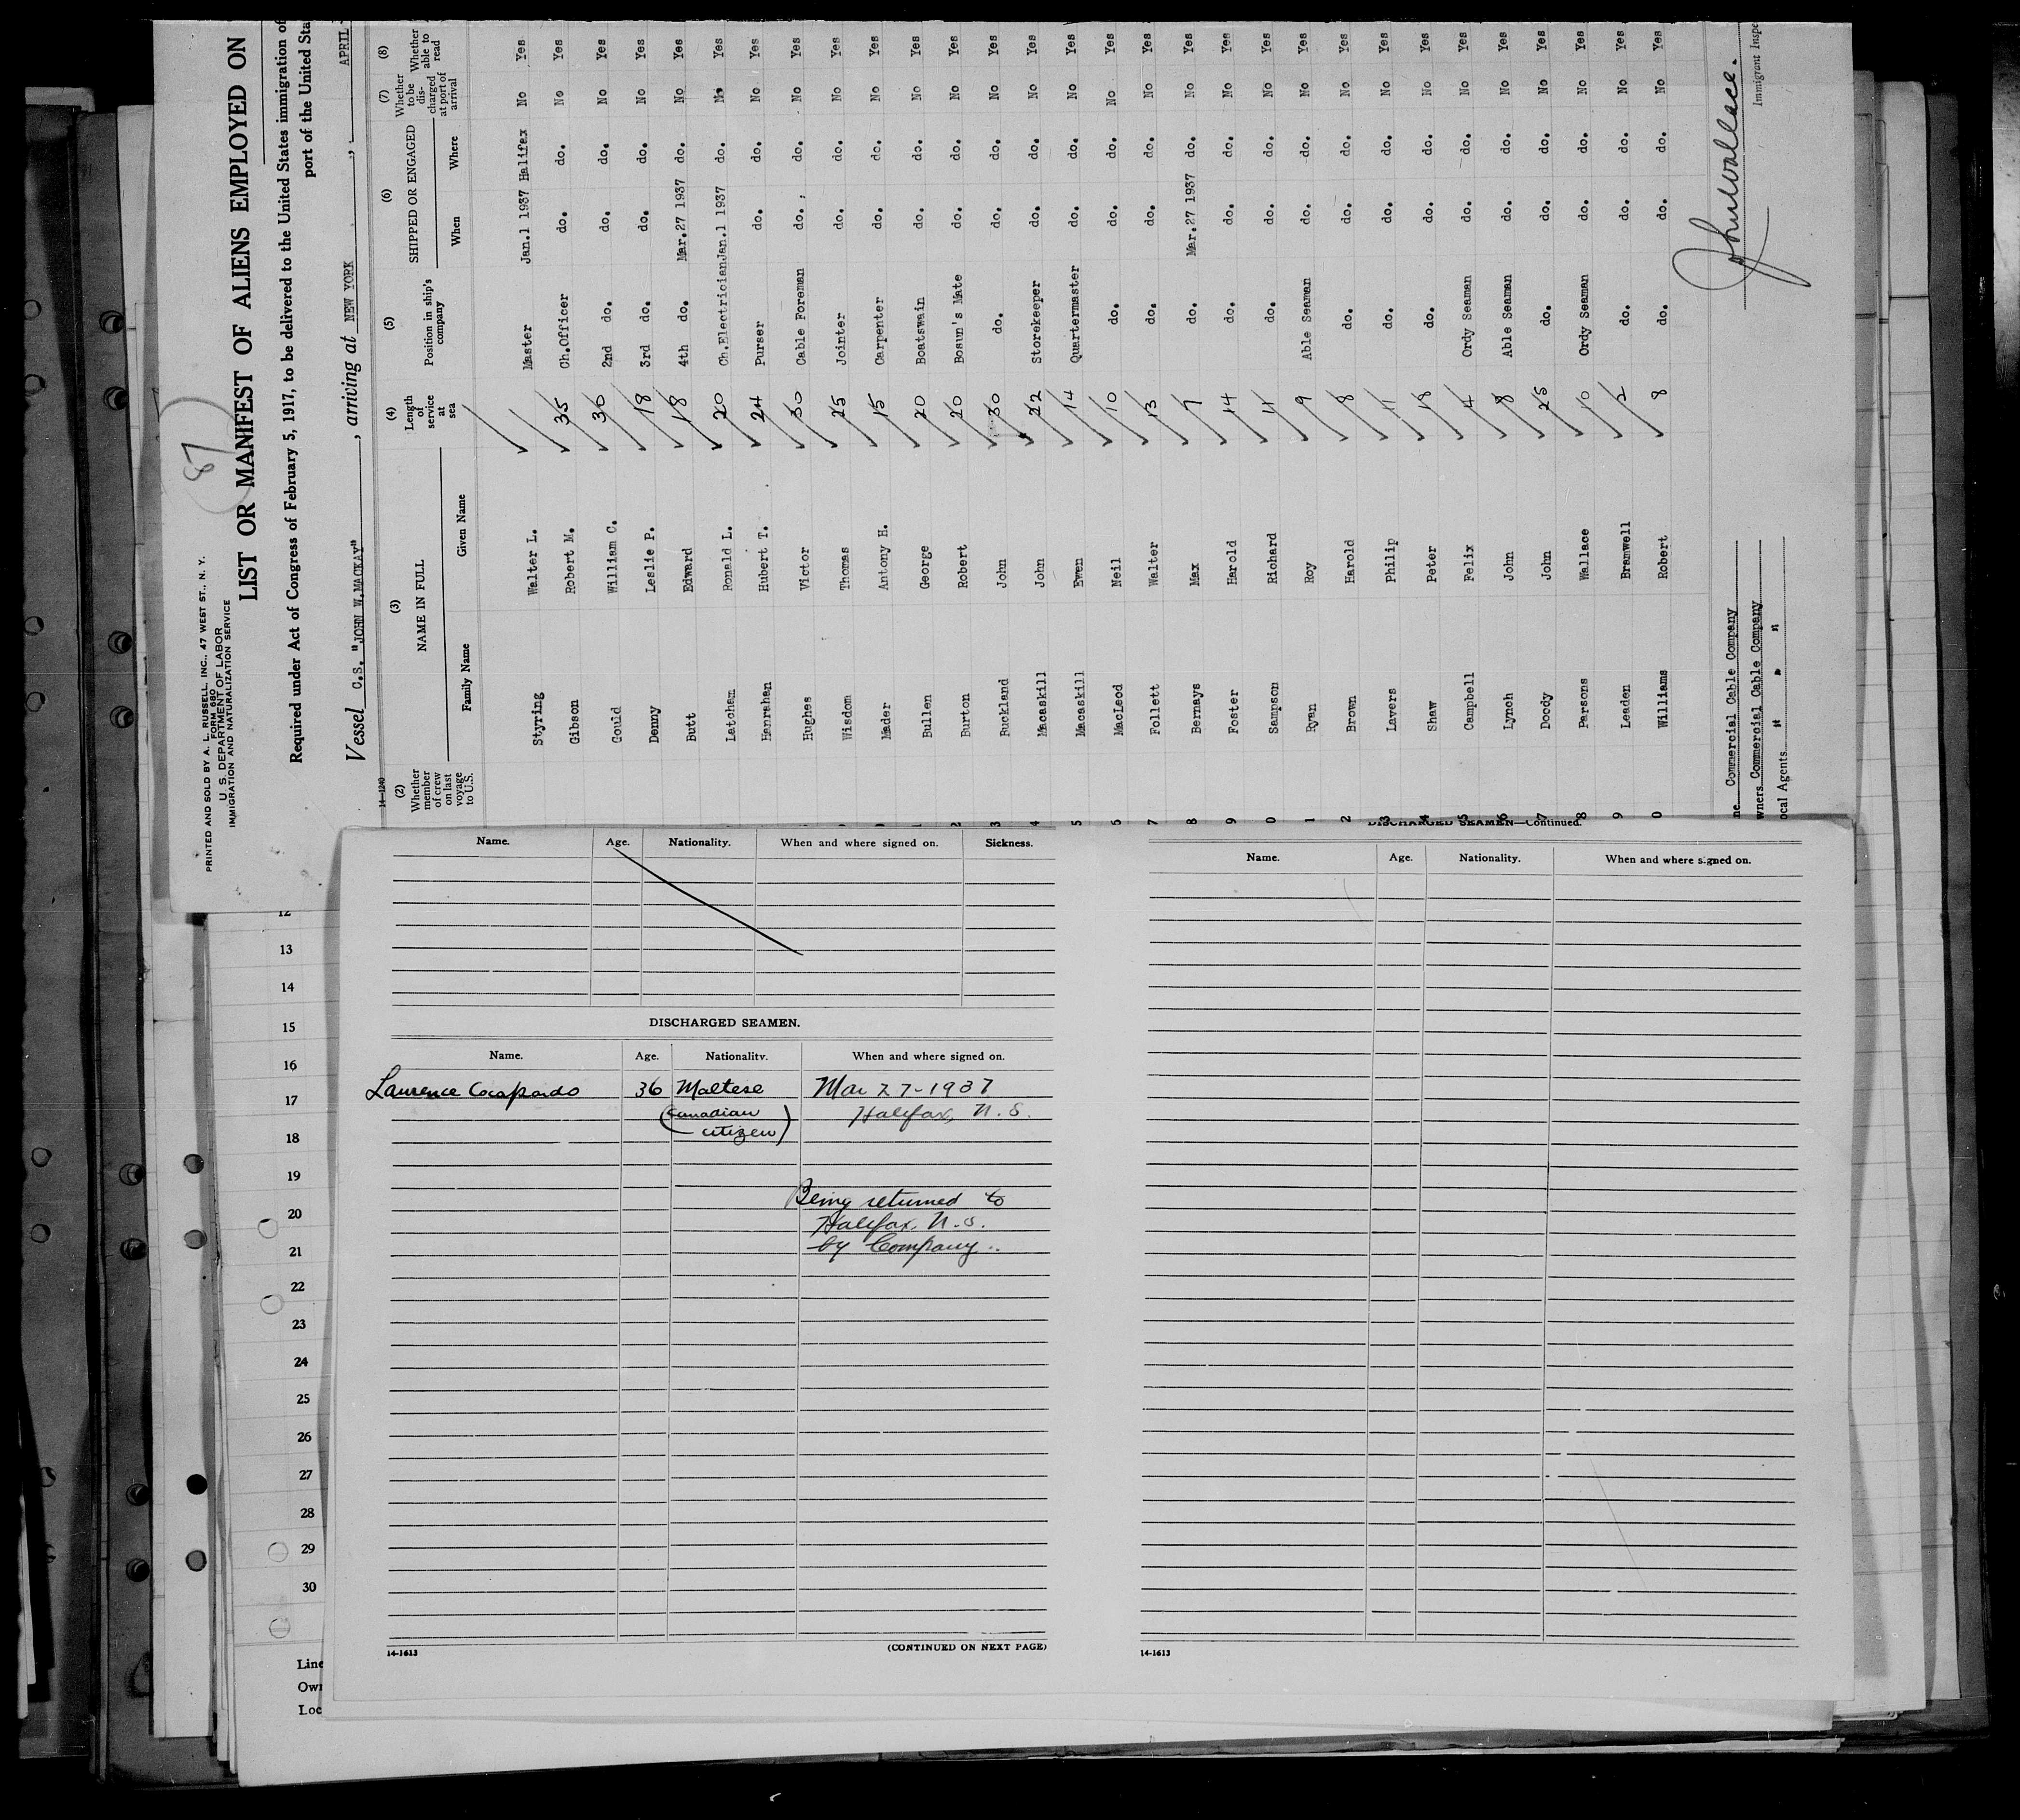 PRINTED AND SOLD BY A. L. RUSSELL, INC., 47 WEST ST., N. Y.
FORM 680
U. S. DEPARTMENT OF LABOR
IMMIGRATION AND NATURALIZATION SERVICE
87
LIST OR MANIFEST OF ALIENS EMPLOYED ON
Required under Act of Congress of February 5, 1917, to be delivered to the United States immigration of
port of the United Sta
Vessel C.S. "JOHN W.MACKAY" , arriving at NEW YORK , APRIL
14-1240
(2) Whether member of crew on last voyage to U.S.
(3) NAME IN FULL
Family Name Given Name
(4) Length of service at sea
(5) Position in ship's company
(6) SHIPPED OR ENGAGED
When Where
(7) Whether to be discharged at port of arrival
(8) Whether able to read
Styring Walter L. Master Jan.1 1937 Halifax No Yes
Gibson Robert M. 35 Ch.Officer do. do. No Yes
Gould William C. 36 2nd do. do. do. No Yes
Denny Leslie P. 18 3rd do. do. do. No Yes
Butt Edward 18 4th do. Mar.27 1937 do. No Yes
Latcham Ronald L. 20 Ch.Electrician Jan.1 1937 do. No Yes
Hanrahan Hubert T. 24 Purser do. do. No Yes
Hughes Victor 30 Cable Foreman do. do. No Yes
Wisdom Thomas 25 Jointer do. do. No Yes
Mader Antony H. 15 Carpenter do. do. No Yes
Bullen George 20 Boatswain do. do. No Yes
Burton Robert 20 Bosun's Mate do. do. No Yes
Buckland John 30 do. do. do. No Yes
Macaskill John 22 Storekeeper do. do. No Yes
Macaskill Ewen 14 Quartermaster do. do. No Yes
MacLeod Neil 10 do. do. do. No Yes
Follett Walter 13 do. do. do. No Yes
Bernays Max 7 do. Mar.27 1937 do. No Yes
Foster Harold 14 do. do. do. No Yes
Sampson Richard 11 do. do. do. No Yes
Ryan Roy 9 Able Seaman do. do. No Yes
Brown Harold 8 do. do. do. No Yes
Lavers Philip 11 do. do. do. No Yes
Shaw Peter 18 do. do. do. No Yes
Campbell Felix 4 Ordy Seaman do. do. No Yes
Lynch John 8 Able Seaman do. do. No Yes
Doody John 25 do. do. do. No Yes
Parsons Wallace 10 Ordy Seaman do. do. No Yes
Leaden Bramwell 2 do. do. do. No Yes
Williams Robert 8 do. do. do. No Yes
ne Commercial Cable Company
wners Commercial Cable Company
ocal Agents " " "
John Wallace.
Immigrant Inspe
Name. Age. Nationality. When and where signed on. Sickness.
DISCHARGED SEAMEN.
Name. Age. Nationality. When and where signed on.
Laurence 36 Maltese Mar 27-1937
(Canadian Halifax, N.S.
citizen)
Being returned to
Halifax, N.S.
by Company.
(CONTINUED ON NEXT PAGE)
14-1613
DISCHARGED SEAMEN—Continued.
Name. Age. Nationality. When and where signed on.
14-1613
12
13
14
15
16
17
18
19
20
21
22
23
24
25
26
27
28
29
30
Line
Own
Loc